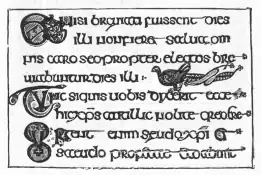 Et nisi breuiati fuissent dies
illi non fieret salua om
nis caro sed propter electos bre
uiabuntur dies illi :
Tunc si quis uobis dixerit ecce
hic xps aut illic nolite credere
Surgent enim seudo xpi
seudo